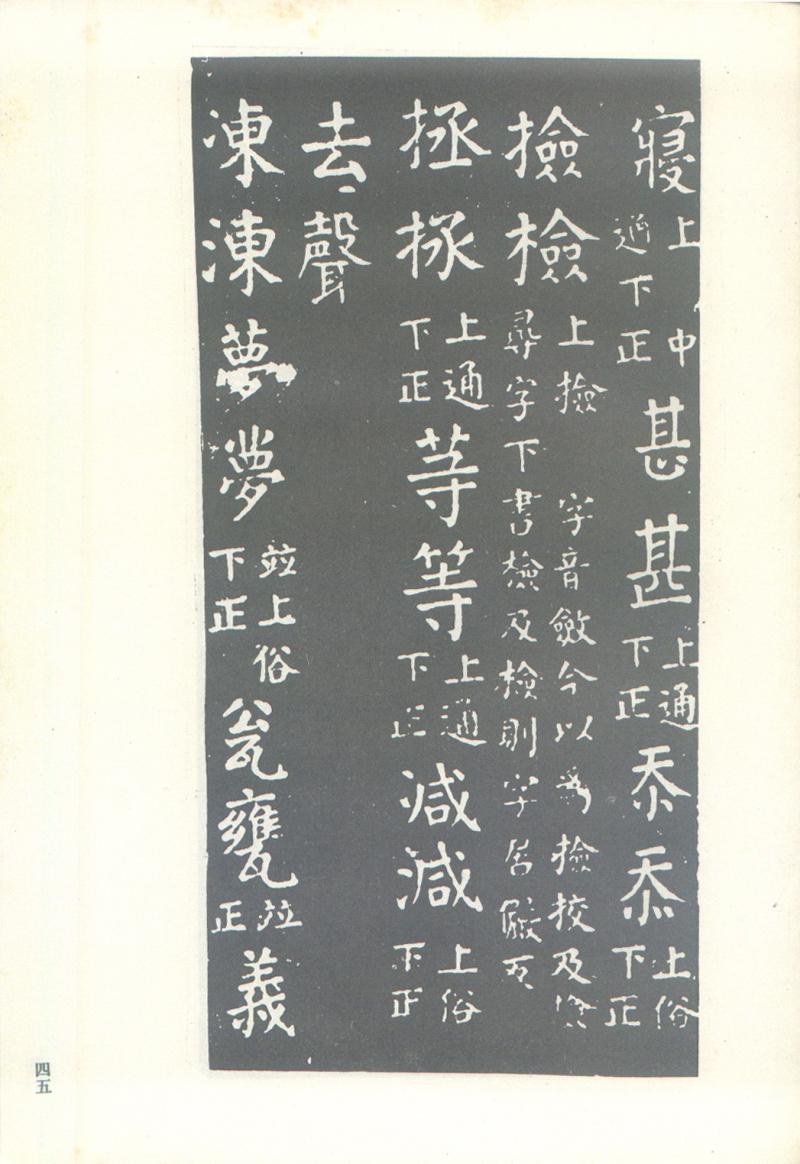 寢上中通下正甚甚上通下正忝忝上俗下正
撿檢上撿字音斂今以為撿挍及
尋字下書檢及檢則字居儼反
拯拯上通下正等等上通下正減減上俗下正
去聲
凍涷夢夢並上俗下正瓮甕並正義
四五